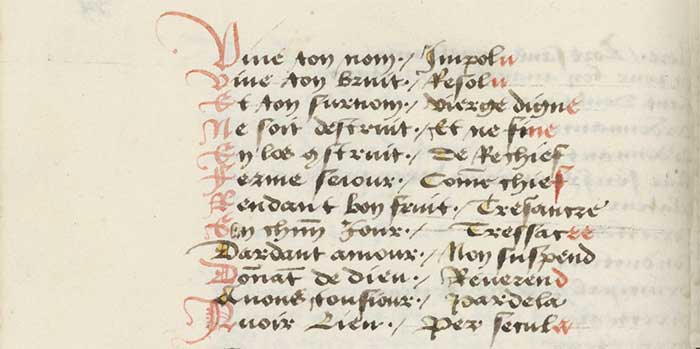 Viue ton nom ./ Impolu
Viue ton bruit ./ Resolu
Et ton surnom ./ vierge digne
Ne soit destruit ./ Et ne fine
En los ꝯstruit ./ De Rechief
Ferme seiour ./ Com̃e chief
Rendant bon fruit ./ Tresancre
En chũn Jour ./ Tressacree
Dardant amour ./ Non suspend
Don̄at de dieu ./ Reuerend
Auons tousiour ./ pardela
Auoir Lieu ./ Per secula